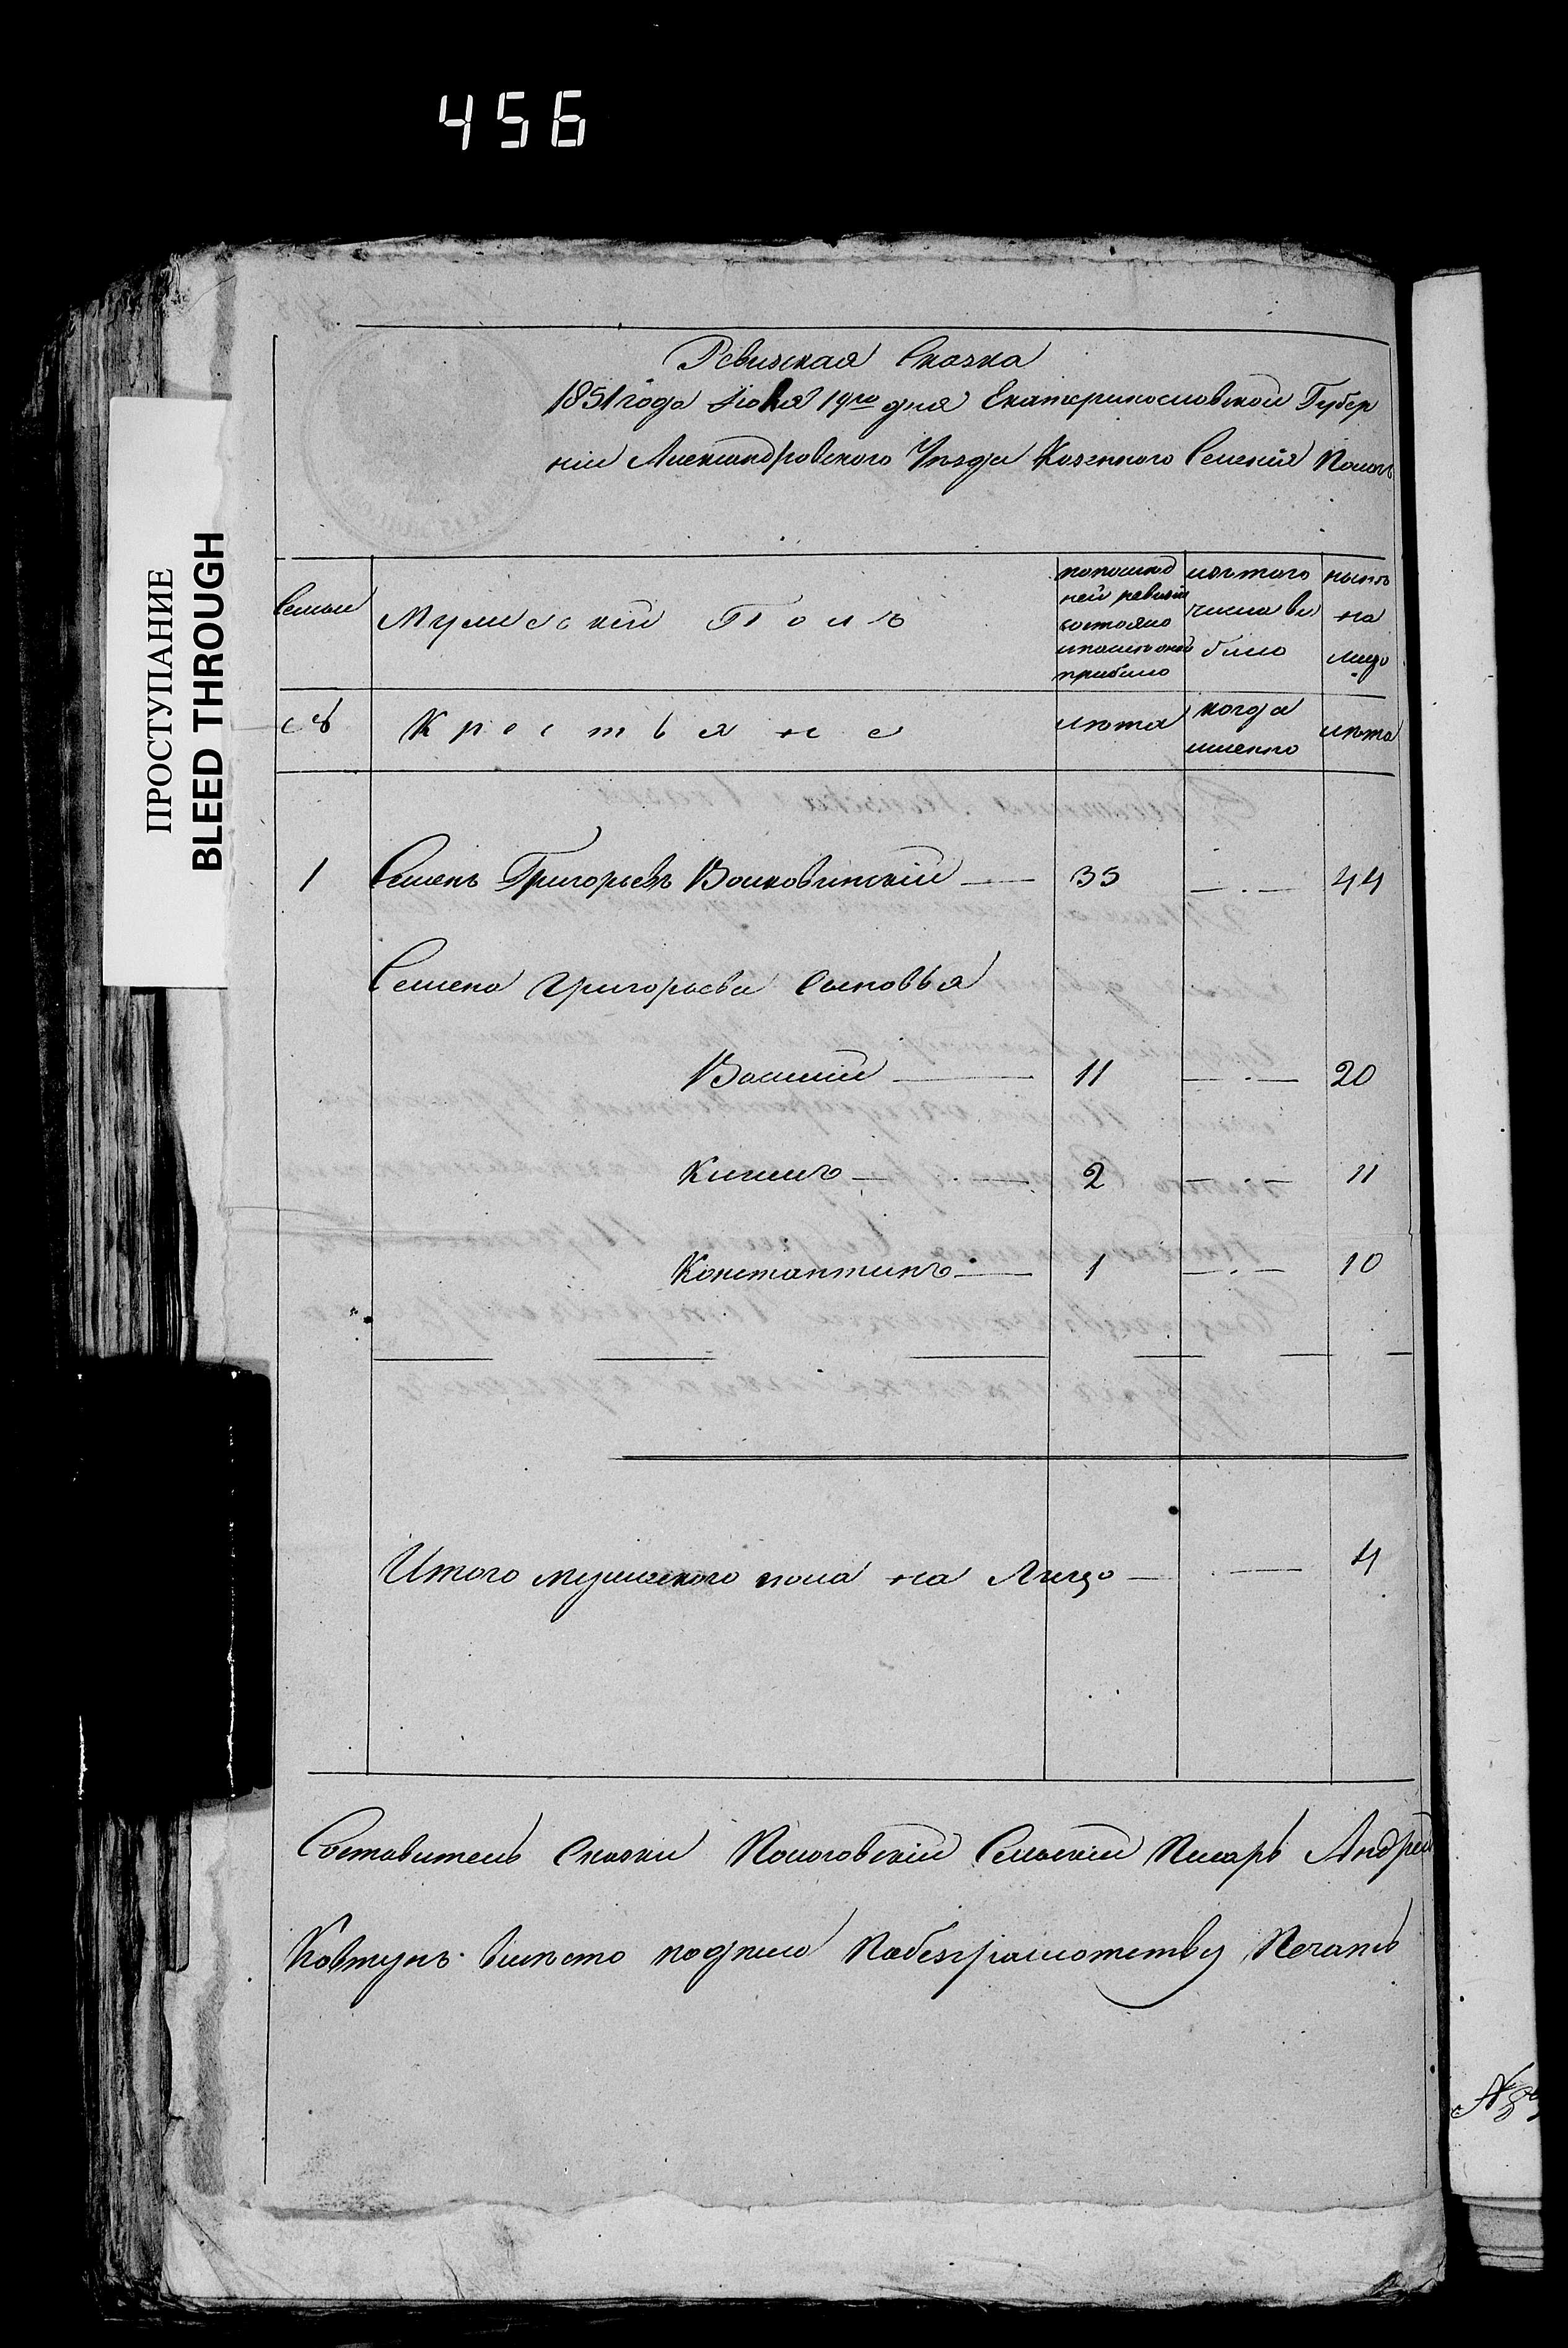 456
ПРОСТУПАНИЕ
BLEED THROUGH
Ревизская Сказка
1851 года Июня 19го дня Екатеринославской Губер
ніи Александровского Уѣзда Казенного Селенія Пологъ
Семьи
Мужескій Полъ
попослѣд
ней ревизіи
состояло
ипослѣ оной
прибыло
изътого
числа вы
было
нынѣ
на
лицо
№
Крестьяне
лѣта
когда
именно
лѣта
1 Семенъ Григорьевъ Волковинскій 35 44
Семена Григорьева Сыновья
Василій 11 20
Килимъ 2 11
Константинъ 1 10
Итого мужеского пола на Лицо 4
Составитель Сказки Пологовскій Сельскій Писарь Андрей
Ковтунъ вмѣсто подписи Побезграмотству Печать